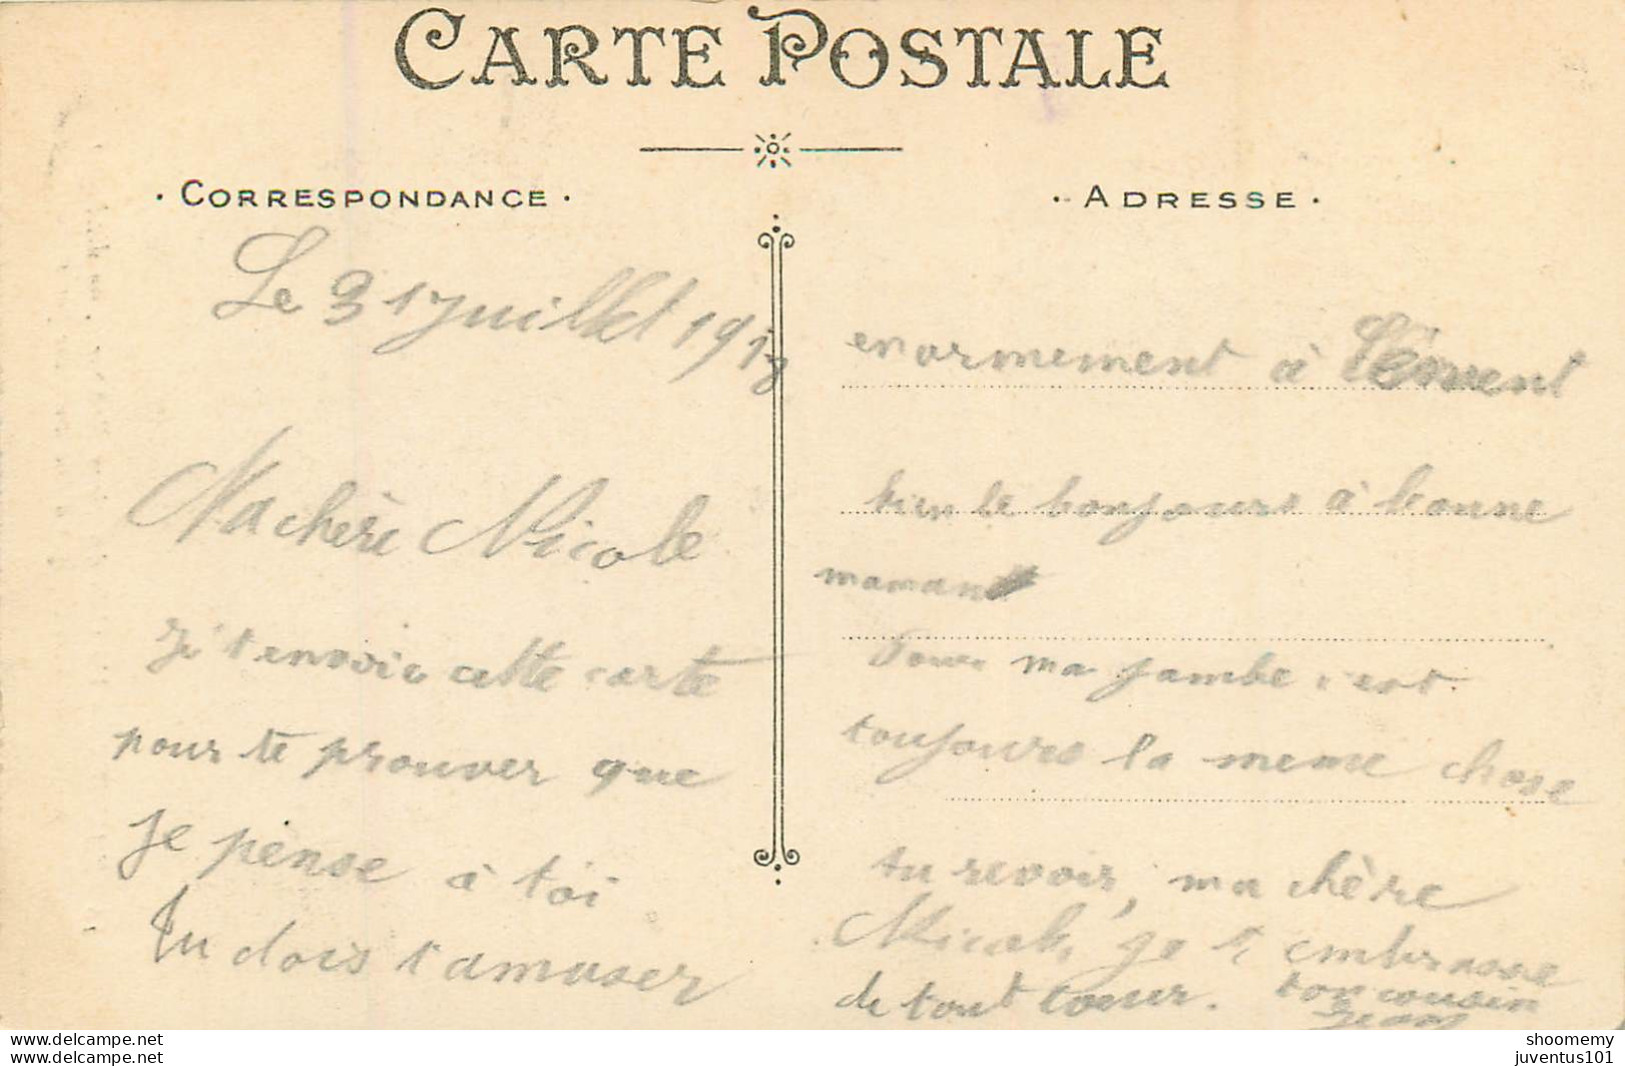 CARTE POSTALE
· CORRESPONDANCE ·
Le 31 juillet 1918
Ma chère Nicole
Je t'envoie cette carte
pour te prouver que
je pense à toi
Tu dois t'amuser
· ADRESSE ·
enormement à
bien le bonjours à bonne
maman
Pour ma jambe c'est
toujours la meme chose
au revoir, ma chère
Nicole, je t'embrasse
de tout coeur. ton cousin
Jean
shoomemy
juventus101
www.delcampe.net